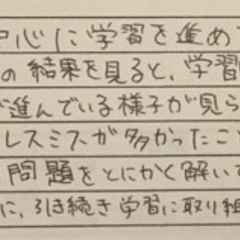 中心に学習を進め
の結果を見ると、学習
が進んでいる様子が見ら
レスミスが多かったこ
問題をとにかく解い
に、引き続き学習に取り組